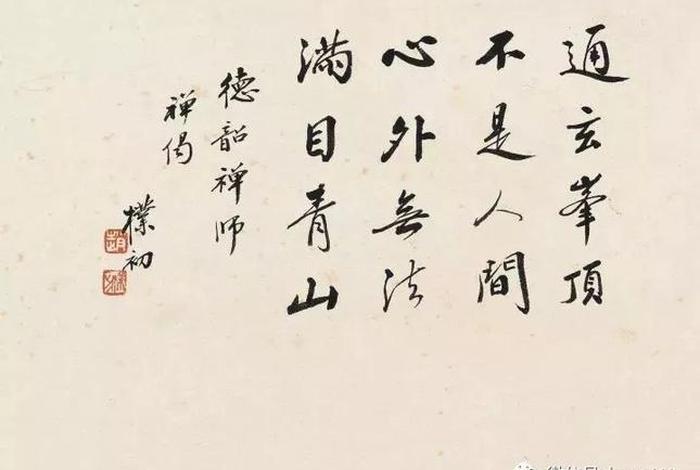 通玄峯頂
不是人間
心外無法
滿目青山
德韶禅师
禅偈
樸初